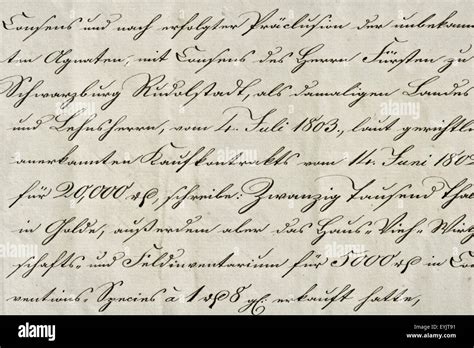 Consens und nach erfolgter Präclusion der unbekann
ten Agnaten, mit Consens des Herrn Fürsten zu
Schwarzburg Rudolstadt, als damaligen Landes
und Lehnsherrn, vom 4. Juli 1803., laut gerichtli
anerkannten Kaufkontrakts vom 14. Juni 180
für 20,000 rβ, schreibe: Zwanzig Tausend Tha
in Golde, außerdem aber das Haus- Vieh- Wirt
schafts- und Feldinventarium für 5000 rβ in Con
ventions- Species à 1 rβ 8 gr. erkauft hatte,
alamy
Image ID: EYJT91
www.alamy.com